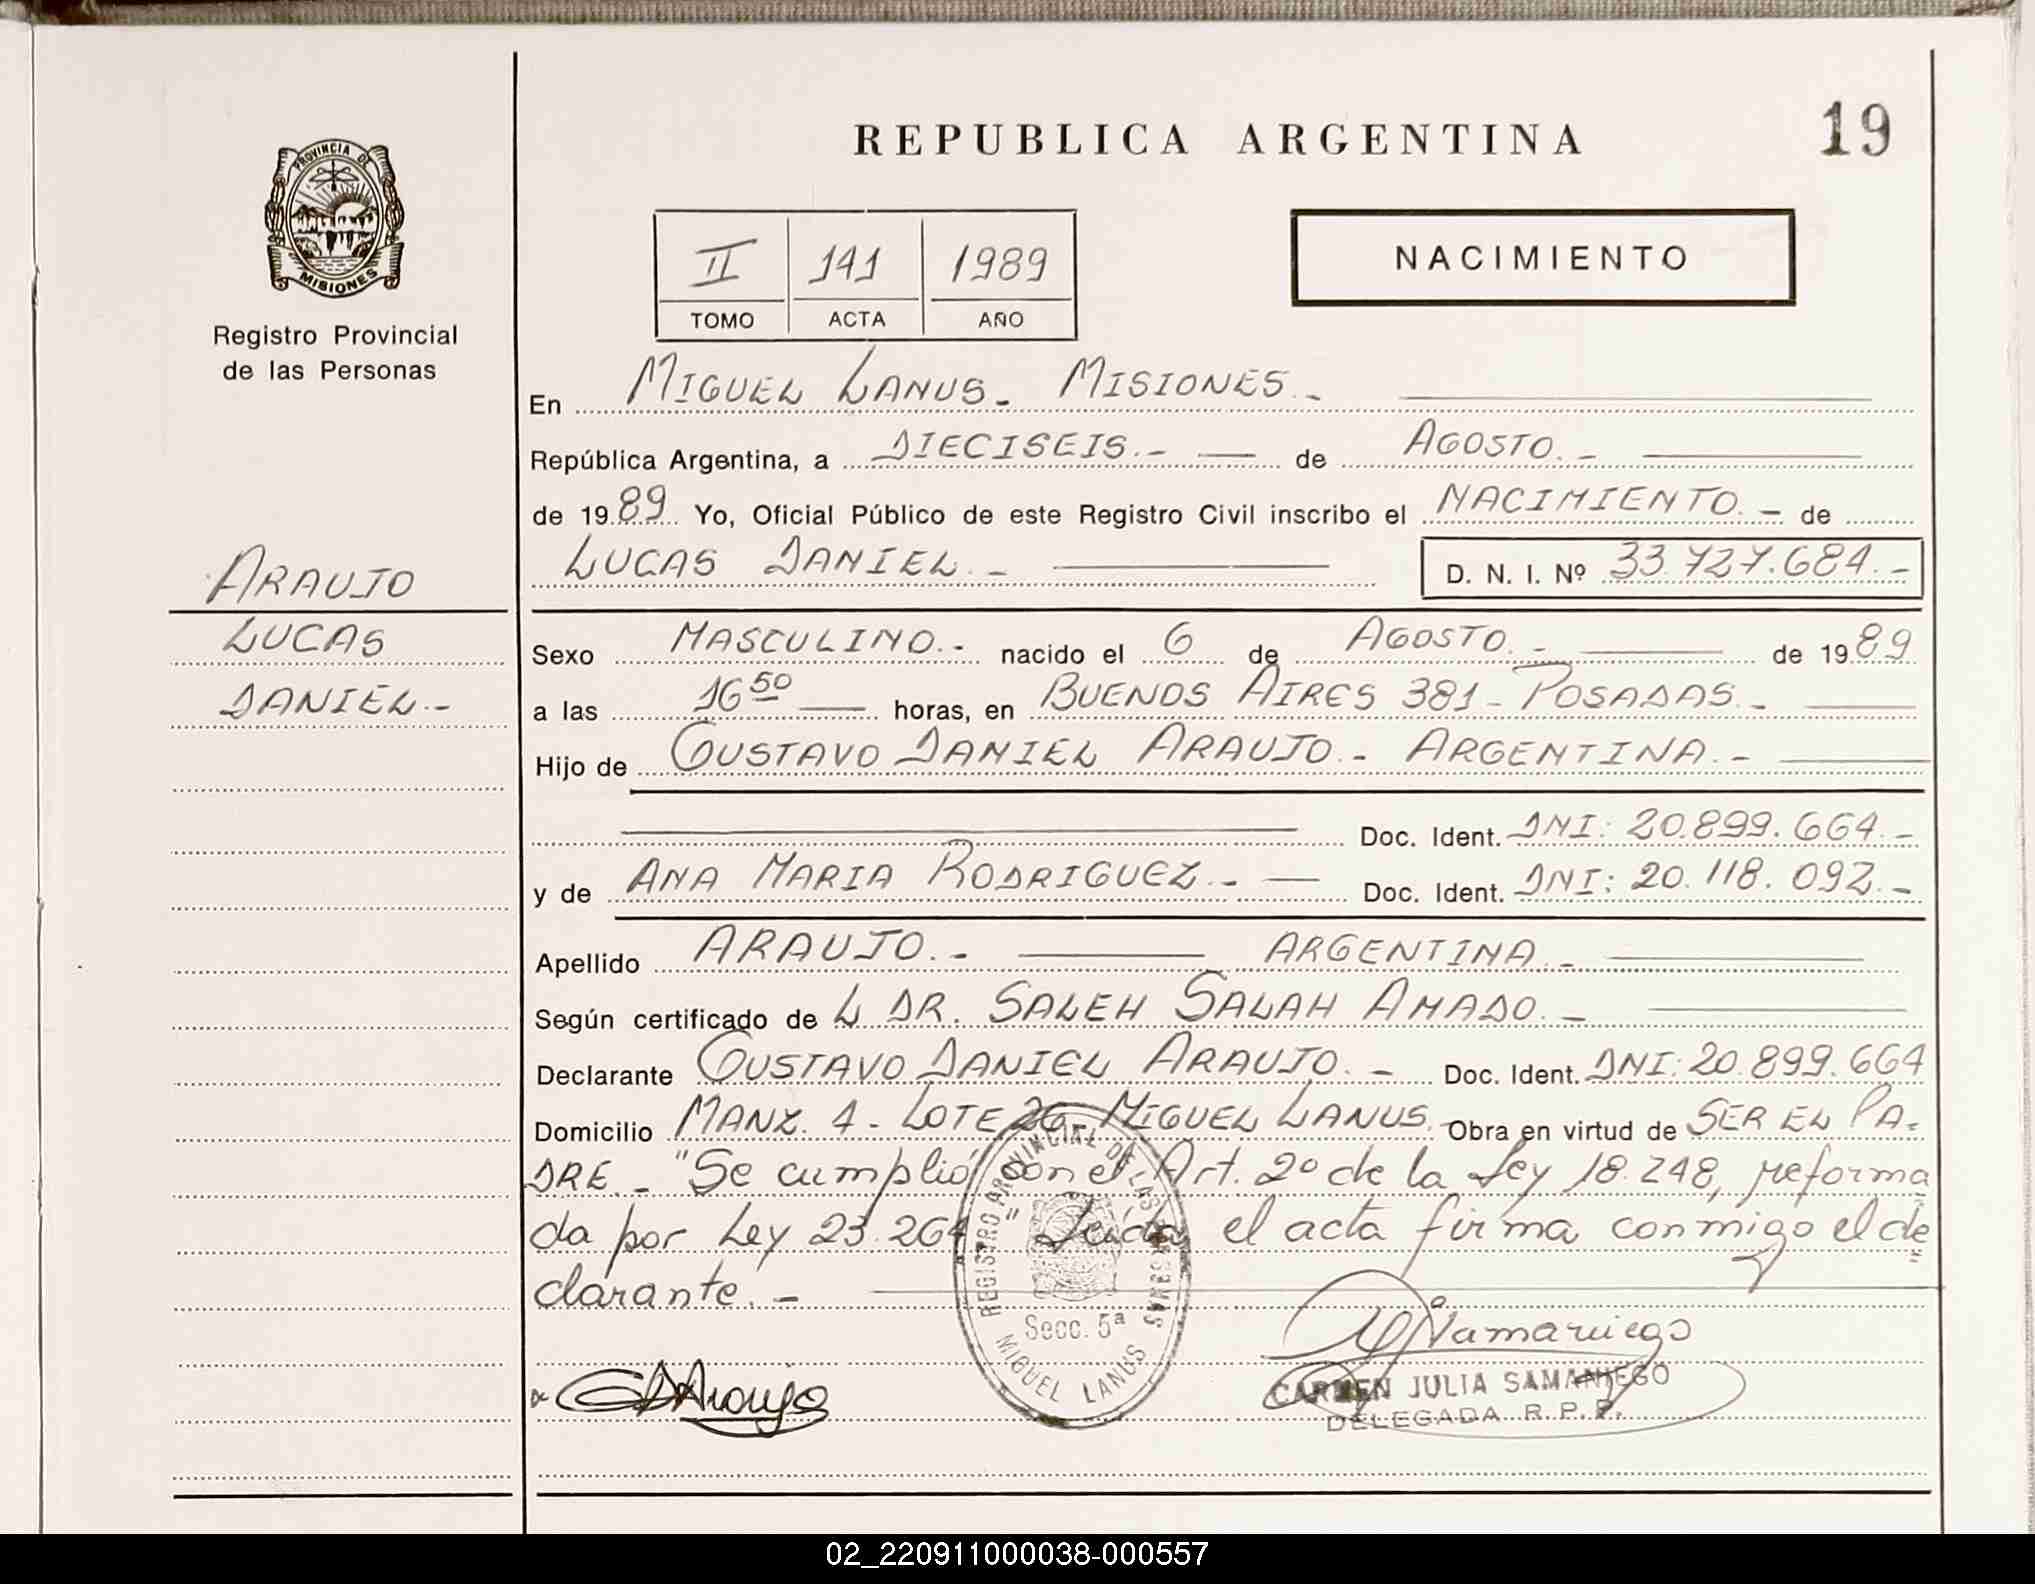 REPUBLICA ARGENTINA
19
PROVINCIA DE
MISIONES
Registro Provincial
de las Personas
II 141 1989
TOMO ACTA AÑO
NACIMIENTO
En MIGUEL LANUS - MISIONES.-
República Argentina, a DIECISEIS.- de AGOSTO.-
de 1989 Yo, Oficial Público de este Registro Civil inscribo el NACIMIENTO.- de
LUCAS DANIEL.- D. N. I. Nº 33.727.684.-
ARAUJO
LUCAS
DANIEL.-
Sexo MASCULINO.- nacido el 6 de AGOSTO.- de 1989
a las 16 50 horas, en BUENOS AIRES 381 - POSADAS.-
Hijo de GUSTAVO DANIEL ARAUJO.- ARGENTINA.-
Doc. Ident. DNI: 20.899.664.-
y de ANA MARIA RODRIGUEZ.- Doc. Ident. DNI: 20.118.092.-
Apellido ARAUJO.- ARGENTINA.-
Según certificado de L DR. SALEH SALAH AMADO.-
Declarante GUSTAVO DANIEL ARAUJO.- Doc. Ident. DNI: 20.899.664
Domicilio MANZ. 4 - LOTE 26 MIGUEL LANUS.- Obra en virtud de SER EL PA-
DRE.- "Se cumplió con el Art. 2º de la Ley 18.248, reforma
da por Ley 23.264" Leída el acta firma conmigo el de
clarante.-
REGISTRO PROVINCIAL DE LAS PERSONAS
Secc. 5ª
MIGUEL LANUS
GDAraujo
Samaniego
CARMEN JULIA SAMANIEGO
DELEGADA R. P. P.
02_220911000038-000557